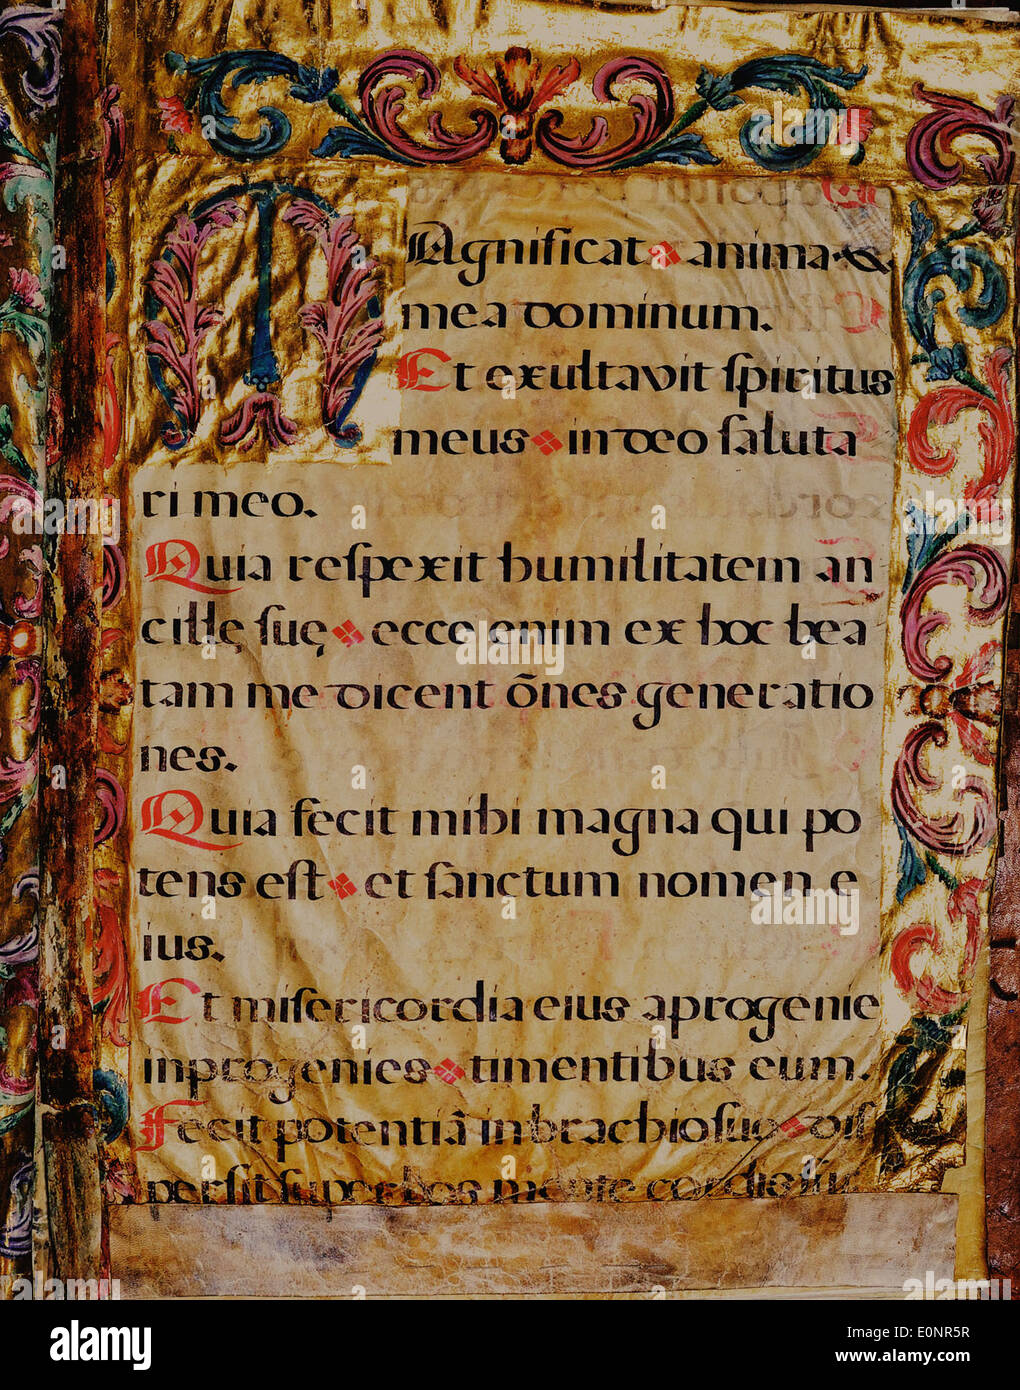 MAgnificat anima
mea dominum.
Et exultavit ſpiritus
meus in deo ſaluta
ri meo.
Quia reſpexit humilitatem an
cillę ſuę ecce enim ex hoc bea
tam me dicent õnes generatio
nes.
Quia fecit mihi magna qui po
tens eſt et ſanctum nomen e
ius.
Et miſericordia eius a progenie
in progenies timentibus eum.
Fecit potentiã in brachio ſuo diſ
perſit ſuperbos mente cordis ſui
alamy
Image ID: E0NR5R
www.alamy.com